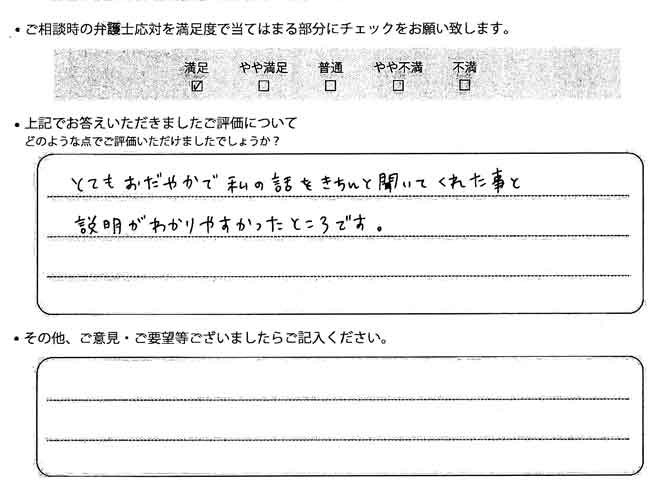 • ご相談時の弁護士応対を満足度で当てはまる部分にチェックをお願い致します。
満足 やや満足 普通 やや不満 不満
☑ ☐ ☐ ☐ ☐
• 上記でお答えいただきましたご評価について
どのような点でご評価いただけましたでしょうか？
とてもおだやかで私の話をきちんと聞いてくれた事と
説明がわかりやすかったところです。
• その他、ご意見・ご要望等ございましたらご記入ください。